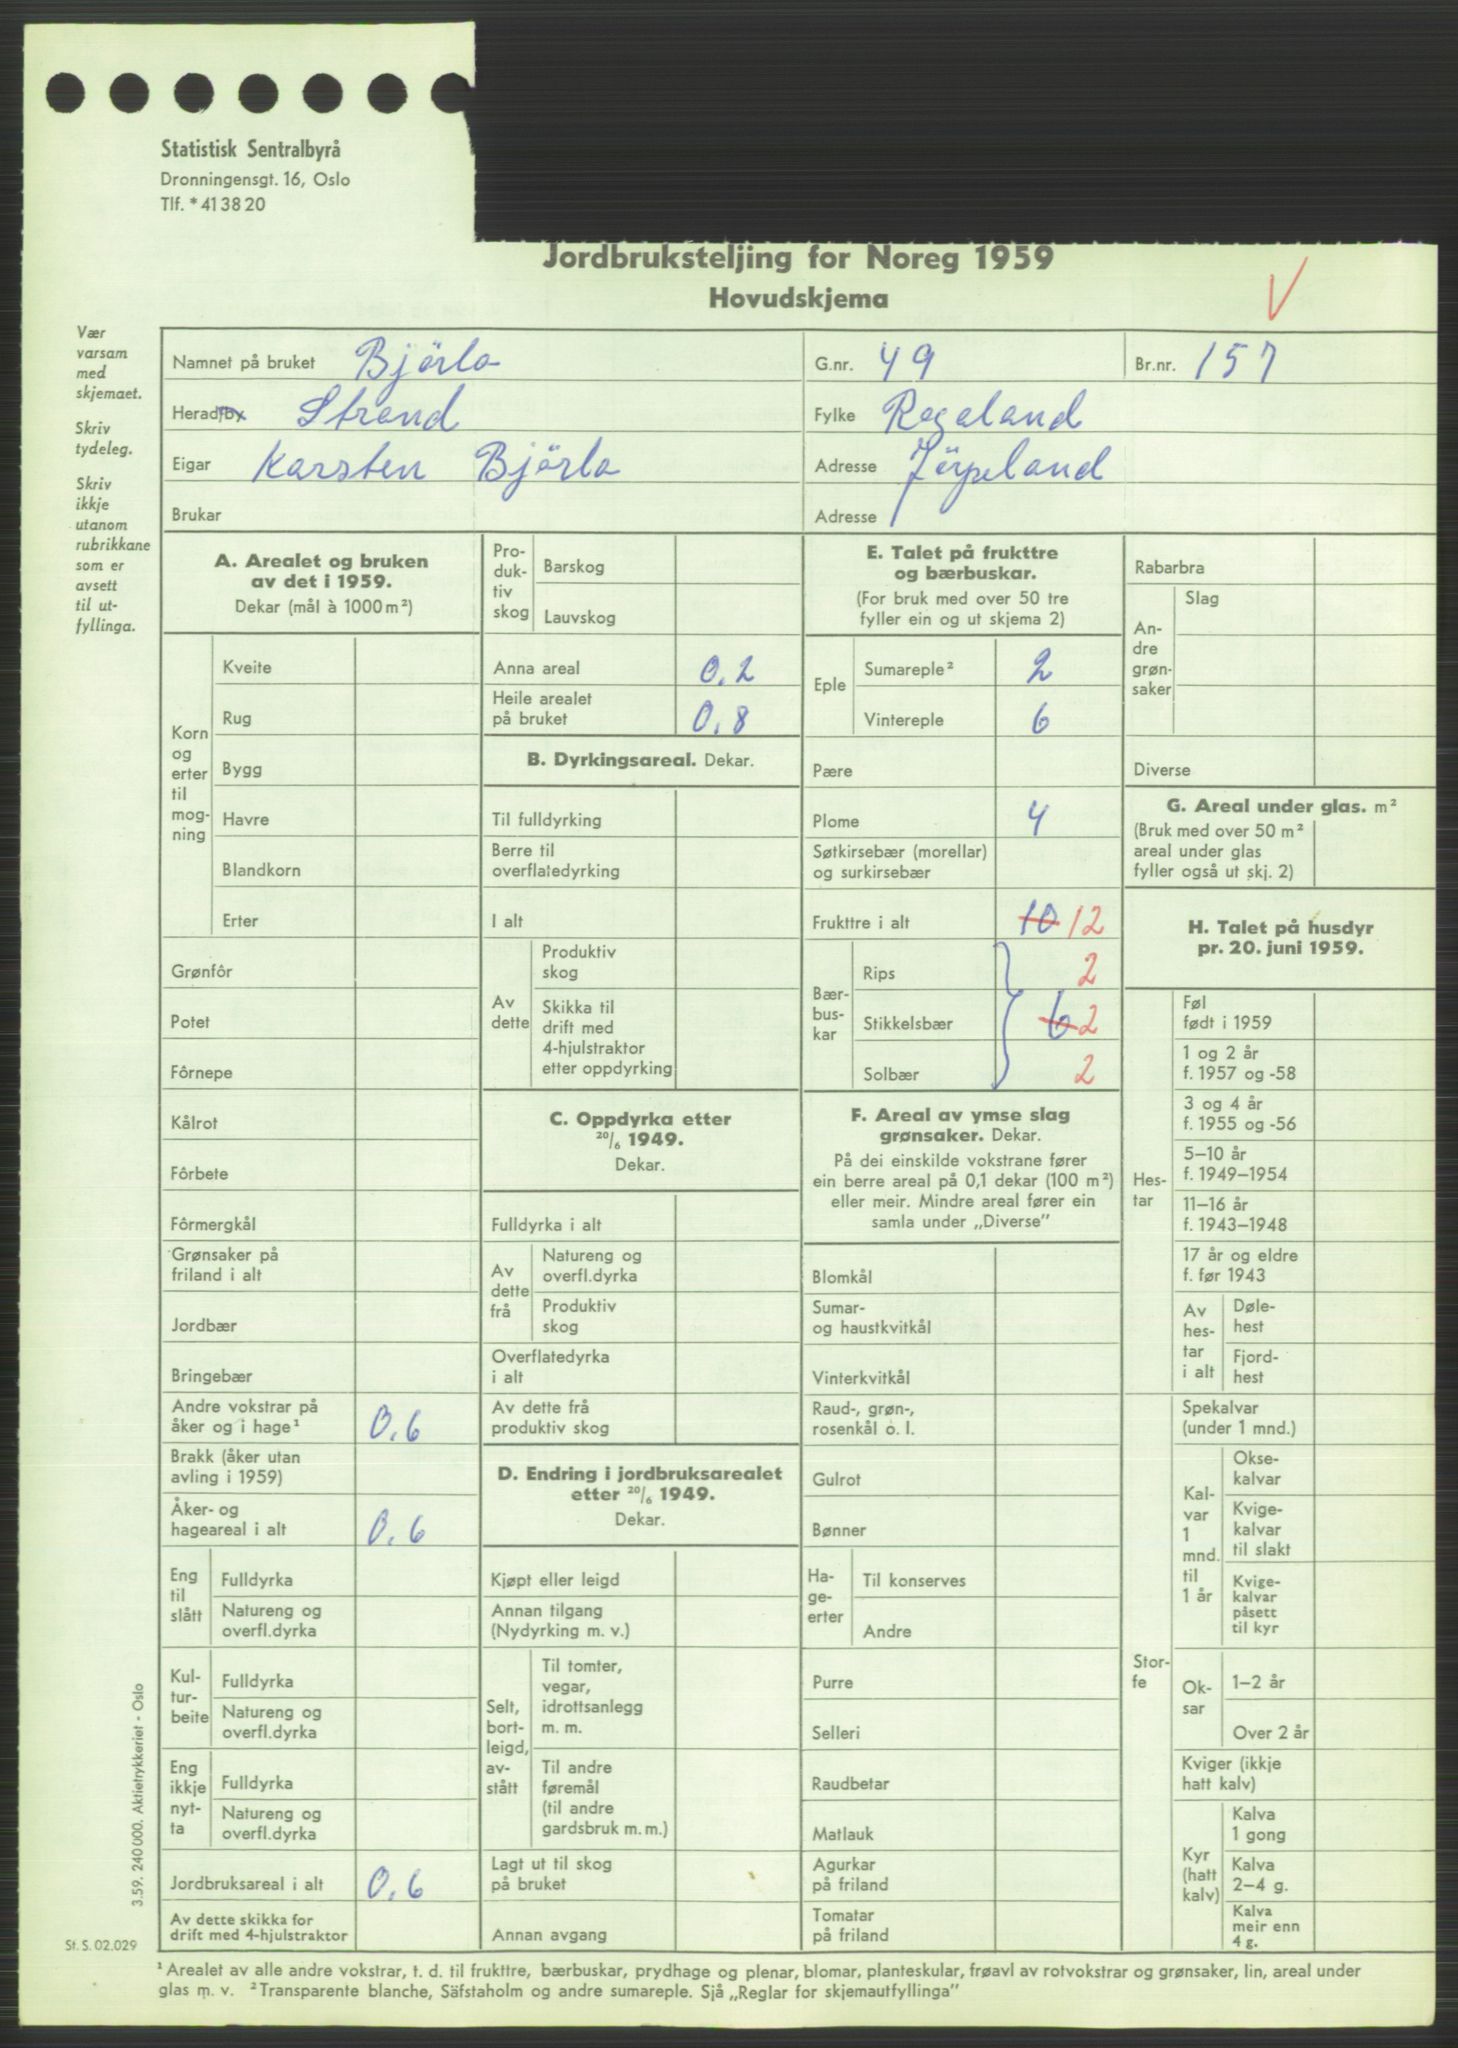 Statistisk Sentralbyrå
Dronningensgt. 16, Oslo
Tlf. * 41 38 20
Jordbruksteljing for Noreg 1959
Hovudskjema
V
Vær
varsam
med
skjemaet.
Skriv
tydeleg.
Skriv
ikkje
utanom
rubrikkane
som er
avsett
til ut-
fyllinga.
Namnet på bruket Bjørlo
G.nr. 49
Br.nr. 157
Herad/by Strand
Fylke Rogaland
Eigar Karsten Bjørlo
Adresse Jörpeland
Brukar
Adresse
A. Arealet og bruken
av det i 1959.
Dekar (mål à 1000 m²)
Korn
og
erter
til
mog-
ning
Kveite
Rug
Bygg
Havre
Blandkorn
Erter
Grønfôr
Potet
Fôrnepe
Kålrot
Fôrbete
Fôrmergkål
Grønsaker på
friland i alt
Jordbær
Bringebær
Andre vokstrar på
åker og i hage¹ 0.6
Brakk (åker utan
avling i 1959)
Åker- og
hageareal i alt 0.6
Eng
til
slått
Fulldyrka
Natureng og
overfl.dyrka
Kul-
tur-
beite
Fulldyrka
Natureng og
overfl.dyrka
Eng
ikkje
nyt-
ta
Fulldyrka
Natureng og
overfl.dyrka
Jordbruksareal i alt 0.6
Av dette skikka for
drift med 4-hjulstraktor
Pro-
duk-
tiv
skog
Barskog
Lauvskog
Anna areal 0.2
Heile arealet
på bruket 0.8
B. Dyrkingsareal. Dekar.
Til fulldyrking
Berre til
overflatedyrking
I alt
Av
dette
Produktiv
skog
Skikka til
drift med
4-hjulstraktor
etter oppdyrking
C. Oppdyrka etter
20/6 1949.
Dekar.
Fulldyrka i alt
Av
dette
frå
Natureng og
overfl.dyrka
Produktiv
skog
Overflatedyrka
i alt
Av dette frå
produktiv skog
D. Endring i jordbruksarealet
etter 20/6 1949.
Dekar.
Kjøpt eller leigd
Annan tilgang
(Nydyrking m. v.)
Selt,
bort-
leigd,
av-
stått
Til tomter,
vegar,
idrottsanlegg
m. m.
Til andre
føremål
(til andre
gardsbruk m. m.)
Lagt ut til skog
på bruket
Annan avgang
E. Talet på frukttre
og bærbuskar.
(For bruk med over 50 tre
fyller ein og ut skjema 2)
Eple
Sumareple² 2
Vintereple 6
Pære
Plome 4
Søtkirsebær (morellar)
og surkirsebær
Frukttre i alt 10 12
Bær-
bus-
kar
Rips 2
Stikkelsbær 6 2
Solbær 2
F. Areal av ymse slag
grønsaker. Dekar.
På dei einskilde vokstrane fører
ein berre areal på 0,1 dekar (100 m²)
eller meir. Mindre areal fører ein
samla under „Diverse”
Blomkål
Sumar-
og haustkvitkål
Vinterkvitkål
Raud-, grøn-,
rosenkål o. l.
Gulrot
Bønner
Ha-
ge-
erter
Til konserves
Andre
Purre
Selleri
Raudbetar
Matlauk
Agurkar
på friland
Tomatar
på friland
Rabarbra
An-
dre
grøn-
saker
Slag
Diverse
G. Areal under glas. m²
(Bruk med over 50 m²
areal under glas
fyller også ut skj. 2)
H. Talet på husdyr
pr. 20. juni 1959.
Hes-
tar
Føl
født i 1959
1 og 2 år
f. 1957 og -58
3 og 4 år
f. 1955 og -56
5–10 år
f. 1949–1954
11–16 år
f. 1943–1948
17 år og eldre
f. før 1943
Av
hes-
tar
i alt
Døle-
hest
Fjord-
hest
Stor-
fe
Spekalvar
(under 1 mnd.)
Kal-
var
1
mnd.
til
1 år
Okse-
kalvar
Kvige-
kalvar
til slakt
Kvige-
kalvar
påsett
til kyr
Ok-
sar
1–2 år
Over 2 år
Kviger (ikkje
hatt kalv)
Kyr
(hatt
kalv)
Kalva
1 gong
Kalva
2–4 g.
Kalva
meir enn
4 g.
3.59. 240 000. Aktietrykkeriet - Oslo
St. S. 02.029
¹ Arealet av alle andre vokstrar, t. d. til frukttre, bærbuskar, prydhage og plenar, blomar, planteskular, frøavl av rotvokstrar og grønsaker, lin, areal under
glas m. v. ² Transparente blanche, Säfstaholm og andre sumareple. Sjå „Reglar for skjemautfyllinga”